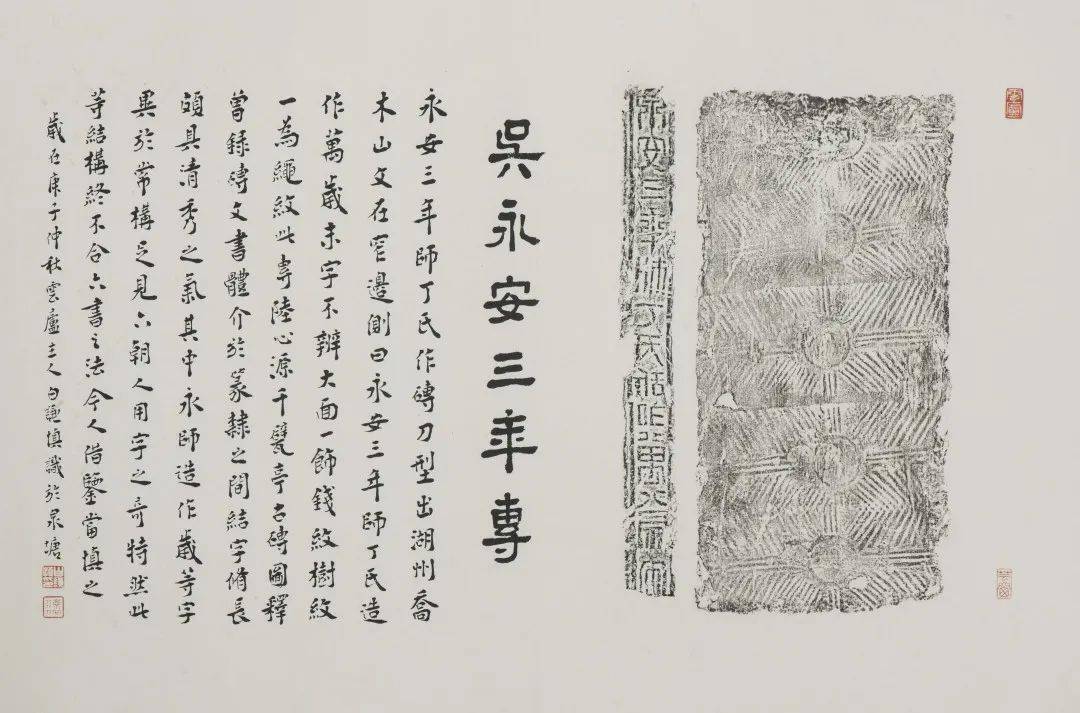 永安三年師丁氏造作萬歲
吳永安三年專
永安三年師丁氏作磚刀型出湖州喬
木山文在窄邊側曰永安三年師丁氏造
作萬歲末字不辨大面一飾錢紋樹紋
一為繩紋此專陸心源千甓亭古磚圖釋
曾錄磚文書體介於篆隸之間結字脩長
頗具清秀之氣其中永師造作歲等字
異於常構足見六朝人用字之奇特然此
等結構終不合六書之法今人借鑒當慎之
歲在庚子仲秋雲廬主人白謙慎識於泉塘